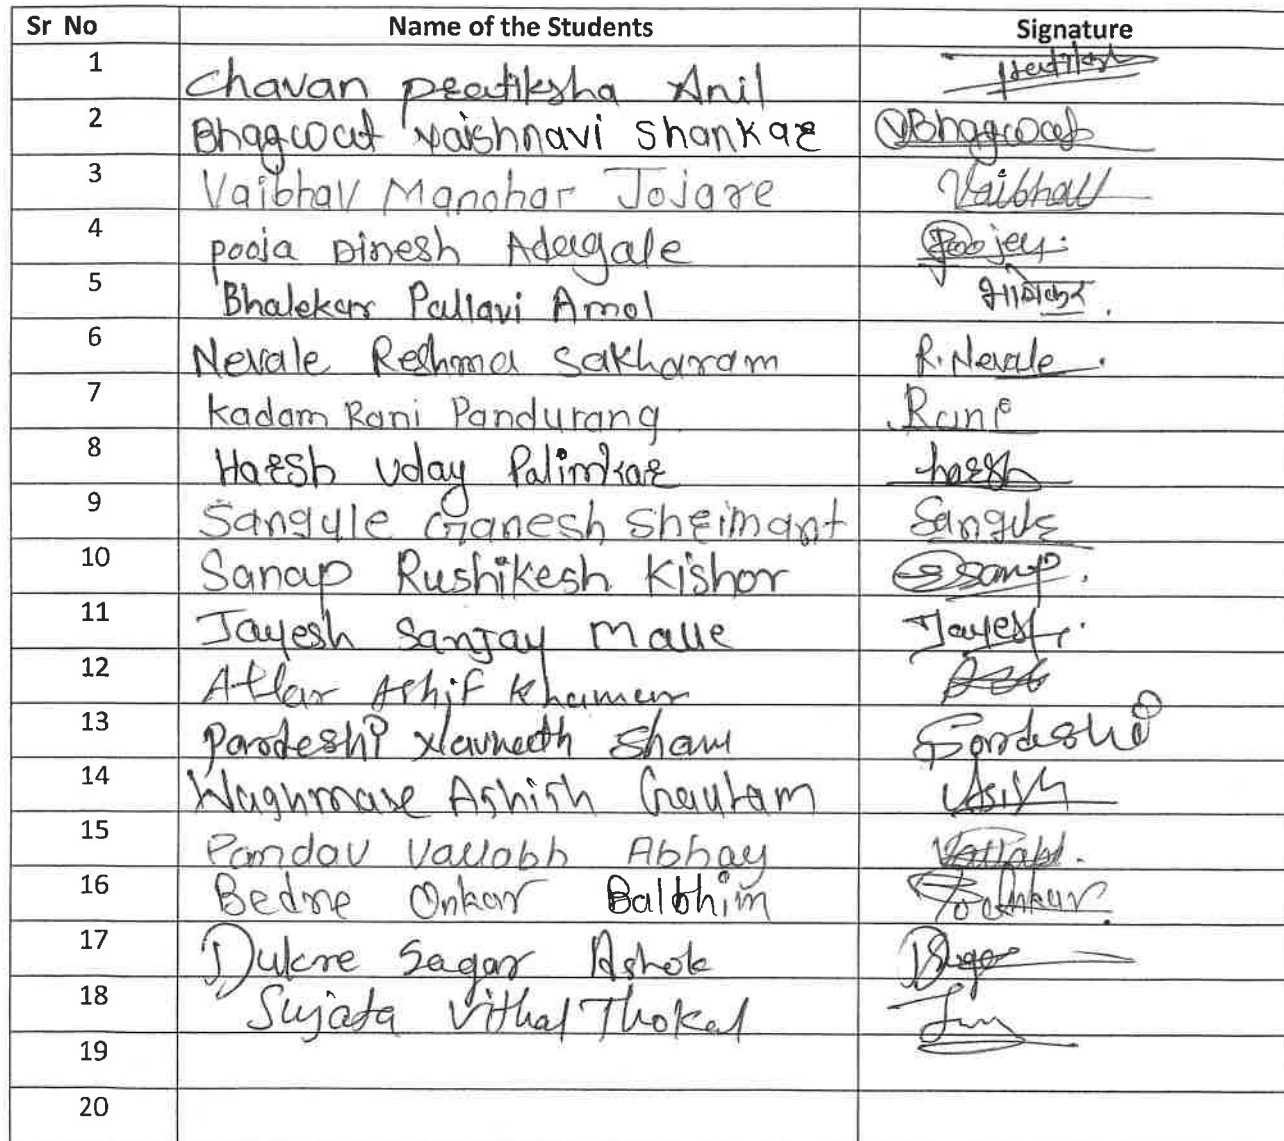 Sr No Name of the Students Signature
1 Chavan Pratiksha Anil Pratiksha
2 Bhagwat Vaishnavi Shankar VBhagwat
3 Vaibhav Manohar Jojare Vaibhav
4 Pooja Dinesh Adagale Pooja
5 Bhalekar Pallavi Amol
6 Nevale Reshma Sakharam R. Nevale.
7 Kadam Rani Pandurang Rani
8 Harsh Uday Palimkar harsh
9 Sangule Ganesh Shrimant Sangule
10 Sanap Rushikesh Kishor
11 Jayesh Sanjay Malle Jayesh
12 Attar Ashif Khamar
13 Pardeshi Navneeth Sham Pardeshi
14 Waghmare Ashish Gautam
15 Pandav Vallabh Abhay Vallabh.
16 Bedre Onkar Balbhim
17 Dukre Sagar Ashok
18 Sujata Vithal Thokal
19
20